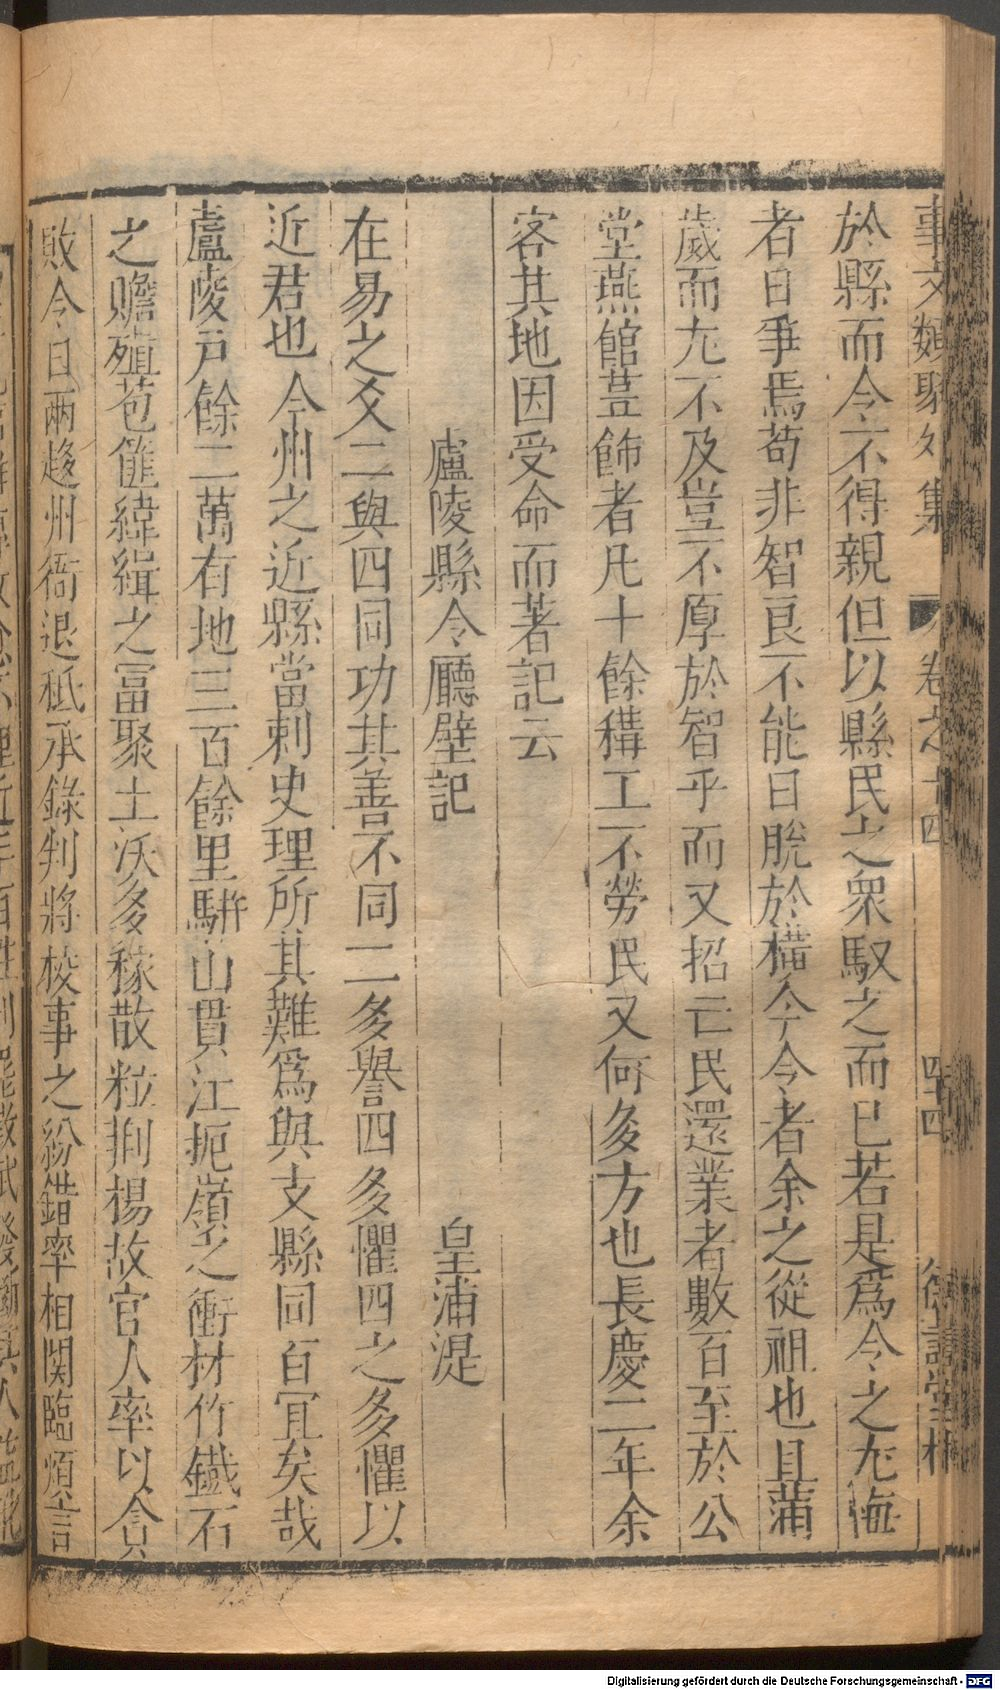 事文類聚外集 卷之十四 四十四
於縣而令不得親但以縣民之衆馭之而已若是爲令之尤悔
者日爭焉苟非智良不能日脫於橫令今者余之從祖也且蒲
歲而尤不及豈不厚於智乎而又招亡民還業者數百至於公
堂燕館葺飾者凡十餘構工不勞民又何多方也長慶二年余
客其地因受命而著記云
盧陵縣令廳壁記 皇甫湜
在易之爻二與四同功其善不同二多譽四多懼四之多懼以
近君也今州之近縣當刺史理所其難爲與支縣同百冝矣哉
盧陵戸餘二萬有地三百餘里駢山貫江扼嶺之衝材竹鐵石
之贍殖苞篚緯緝之冨聚土沃多稼散粒荆楊故官人率以貪
敗今日兩趍州衙退秪承錄判將校事之紛錯率相関臨煩言
Digitalisierung gefördert durch die Deutsche Forschungsgemeinschaft - DFG